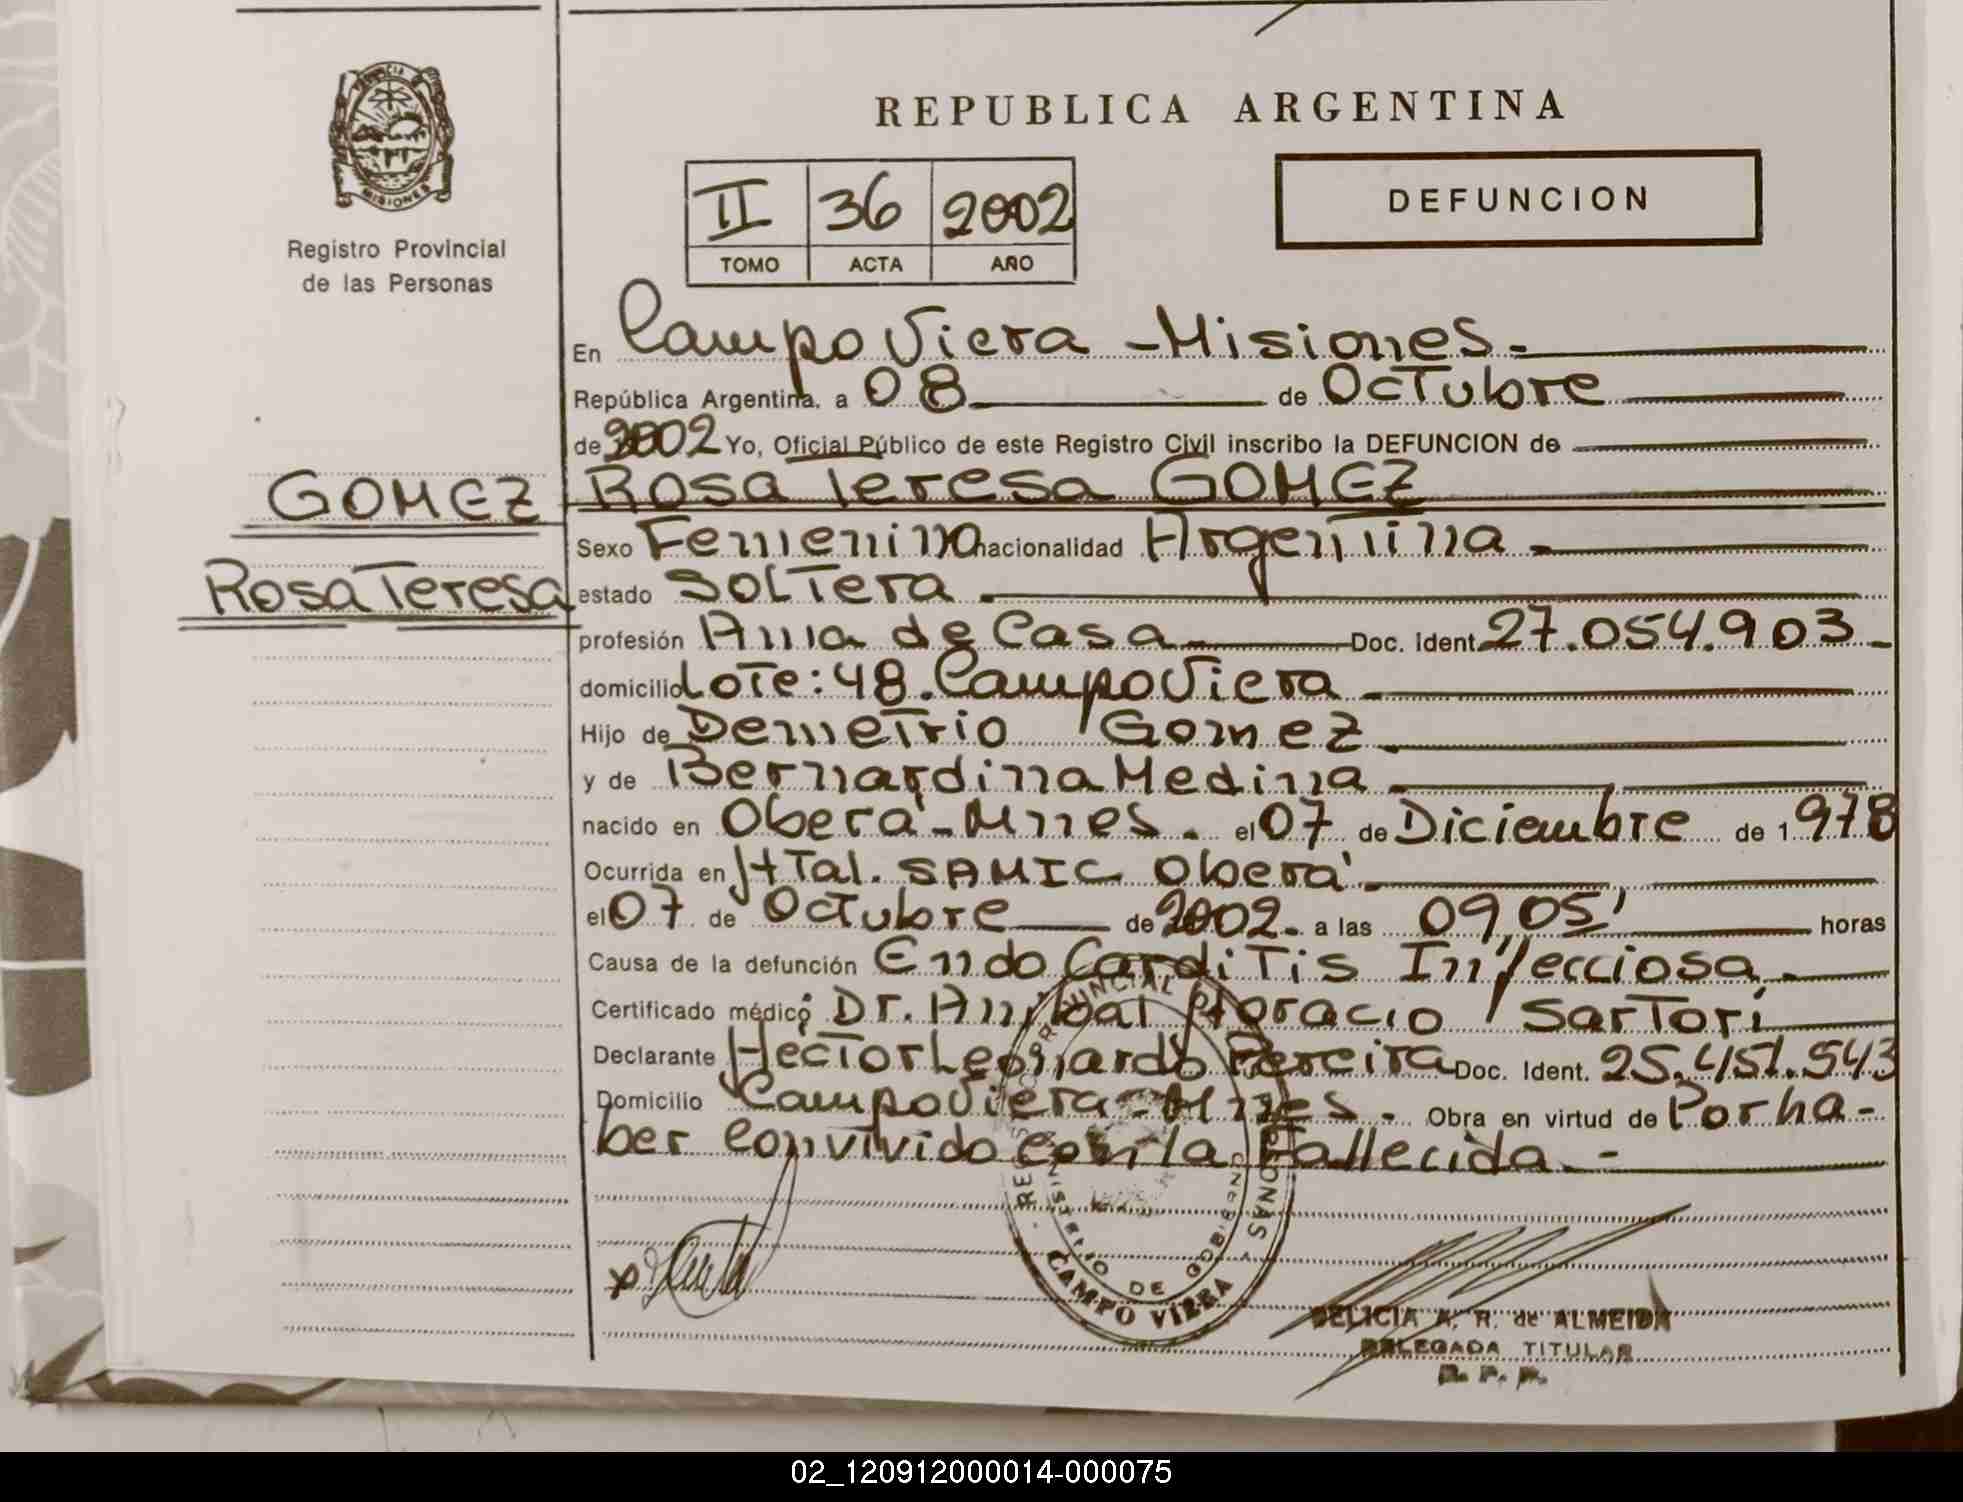 PROVINCIA DE
MISIONES
Registro Provincial
de las Personas
GOMEZ
Rosa Teresa
REPUBLICA ARGENTINA
II 36 2002
TOMO ACTA AÑO
DEFUNCION
En Campo Viera - Misiones.-
República Argentina, a 08 de Octubre
de 2002 Yo, Oficial Público de este Registro Civil inscribo la DEFUNCION de
Rosa Teresa GOMEZ
Sexo Femenino nacionalidad Argentina.-
estado Soltera.
profesión Ama de Casa Doc. Ident. 27.054.903.-
domicilio Lote: 48. Campo Viera.-
Hijo de Demetrio Gomez.-
y de Bernardina Medina.-
nacido en Oberá - Mnes. el 07 de Diciembre de 1.978
Ocurrida en HTal. SAMIC Oberá.-
el 07 de Octubre de 2002.- a las 09,05' horas
Causa de la defunción EndoCarditis Infecciosa.-
Certificado médico: Dr. Anibal Horacio Sartori
Declarante Hector Leonardo Pereira Doc. Ident. 25.451.543
Domicilio Campo Viera - Mnes.- Obra en virtud de Por ha-
ber convivido con la Fallecida.-
REGISTRO PROVINCIAL DE LAS PERSONAS
MINISTERIO DE GOBIERNO
CAMPO VIERA
DELICIA A. R. de ALMEIDA
DELEGADA TITULAR
R. P. P.
02_120912000014-000075